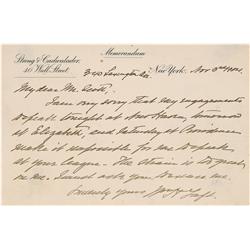 Memorandum
Strong & Cadwalader.
40 Wall Street.
New York. Nov 3rd 1904.
340 Lexington Ave.
My dear Mr. Scott,
I am very sorry that my engagements
to speak tonight at New Haven, tomorrow
at Elizabeth, and Saturday at Providence
make it impossible for me to speak
at your league. The strain is too great
on me. I must ask you to excuse me.
Sincerely yours Wm H Taft